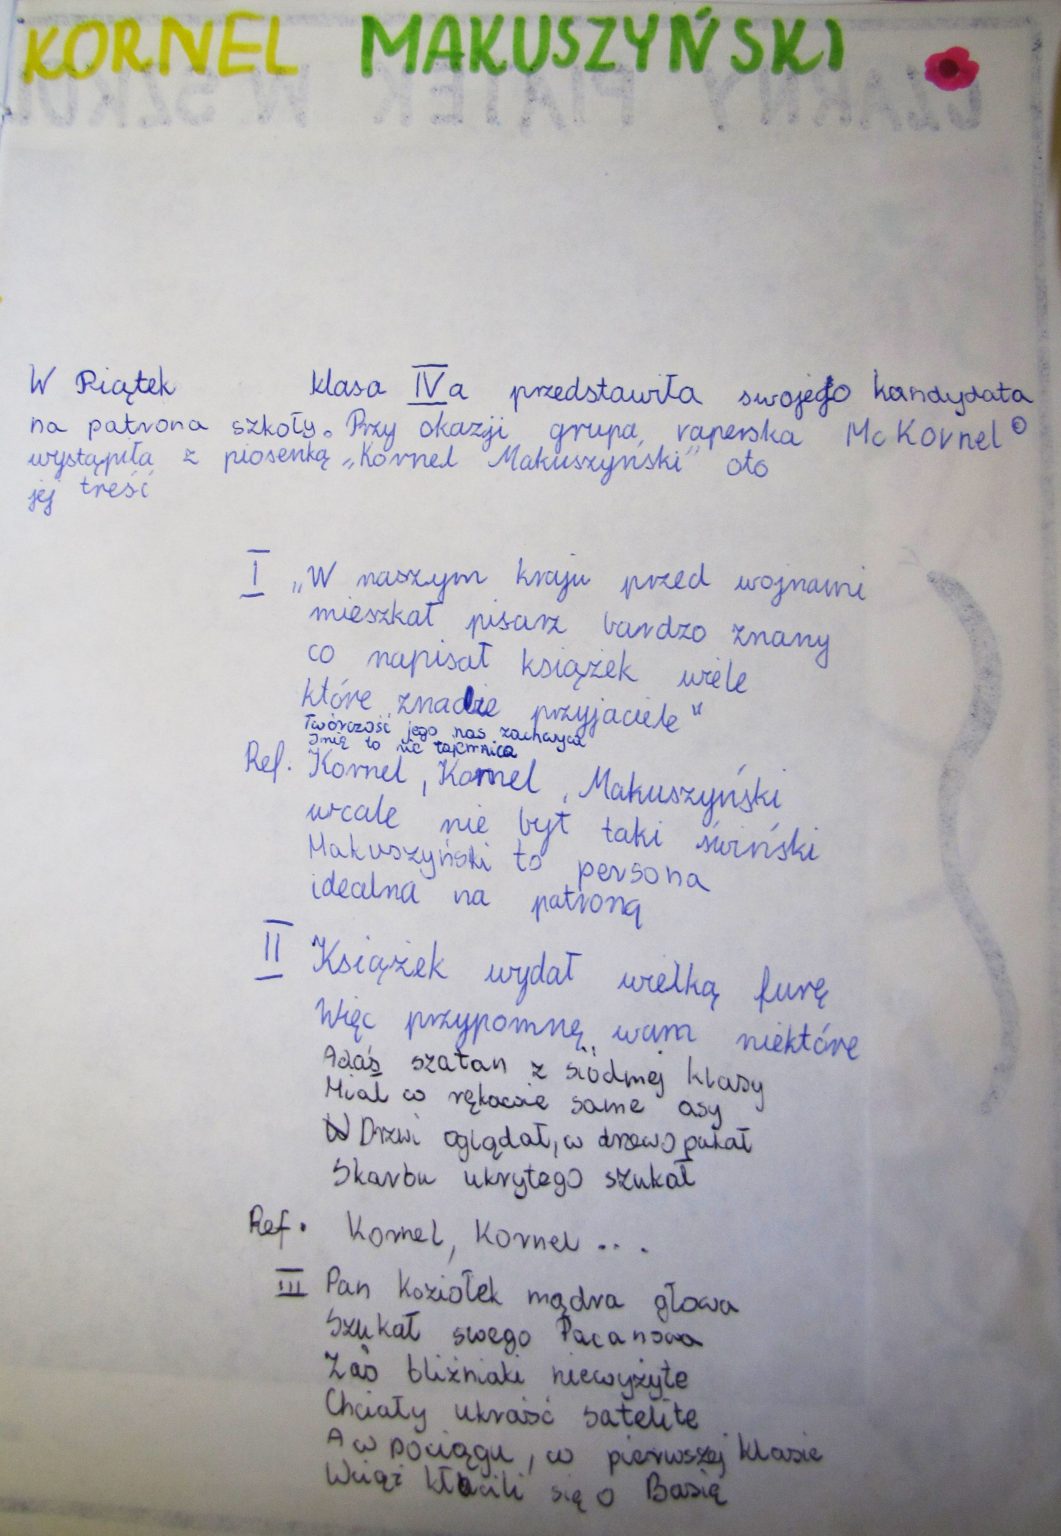 KORNEL MAKUSZYŃSKI
W Piątek klasa IVa przedstawiła swojego kandydata
na patrona szkoły. Przy okazji grupa raperska Mc Kornel ©
wystąpiła z piosenką „Kornel Makuszyński" oto
jej treść
I „W naszym kraju przed wojnami
mieszkał pisarz bardzo znany
co napisał książek wiele
które znacie przyjaciele"
Twórczość jego nas zachwyca
Imię to nie tajemnica
Ref. Kornel, Kornel, Makuszyński
wcale nie był taki świński
Makuszyński to persona
idealna na patroną
II Książek wydał wielką furę
Więc przypomnę wam niektóre
Adaś szatan z siódmej klasy
Miał w rękawie same asy
W Drzwi oglądał, w drzewo pukał
Skarbu ukrytego szukał
Ref. Kornel, Kornel ...
III Pan Koziołek mądra głowa
Szukał swego Pacanowa
Zaś bliźniaki niewyżyte
Chciały ukraść satelite
A w pociągu, w pierwszej klasie
Wciąż kłócili się o Basię
CZARNY PIĄTEK W SZKOL